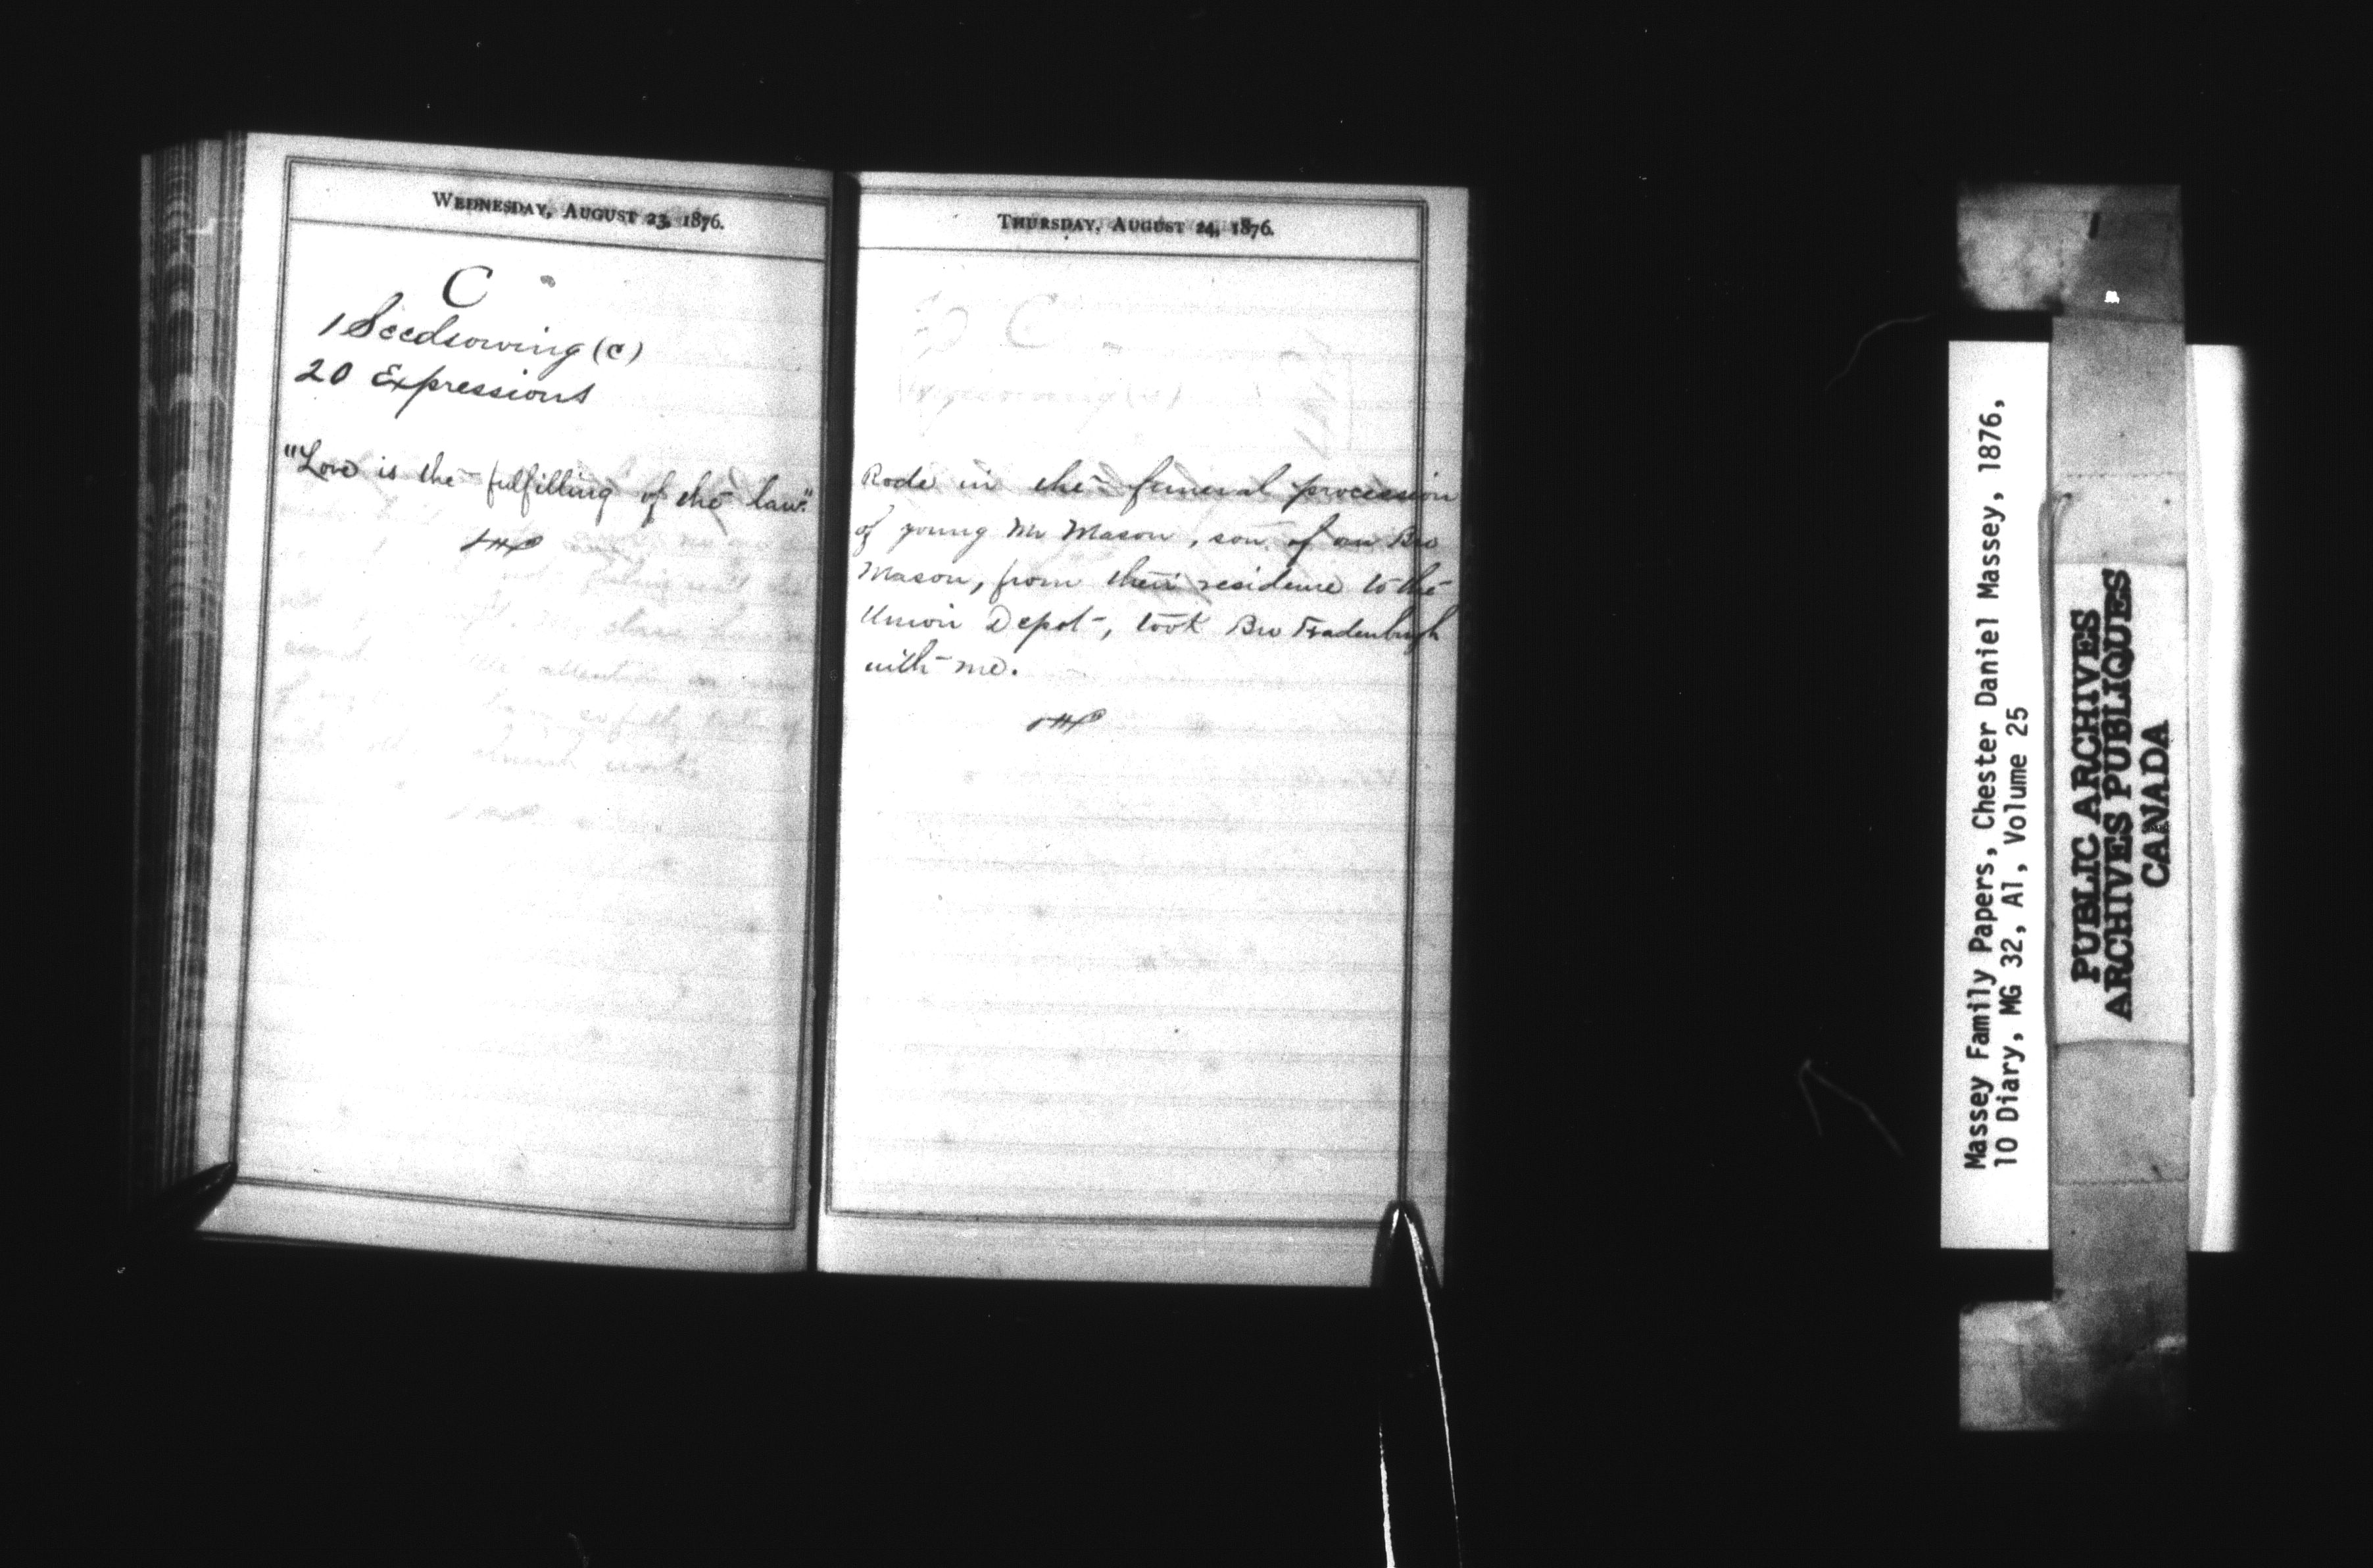 WEDNESDAY, AUGUST 23, 1876.
C
1 Seedsowing (c)
20 Expressions
"Love is the fulfilling of the law."
THURSDAY, AUGUST 24, 1876.
Rode in the funeral procession
of young Mr Mason, son of our Bro
Mason, from their residence to the
Union Depot, took Bro Fradenburgh
with me.
Massey Family Papers, Chester Daniel Massey, 1876,
10 Diary, MG 32, A1, Volume 25
PUBLIC ARCHIVES
ARCHIVES PUBLIQUES
CANADA